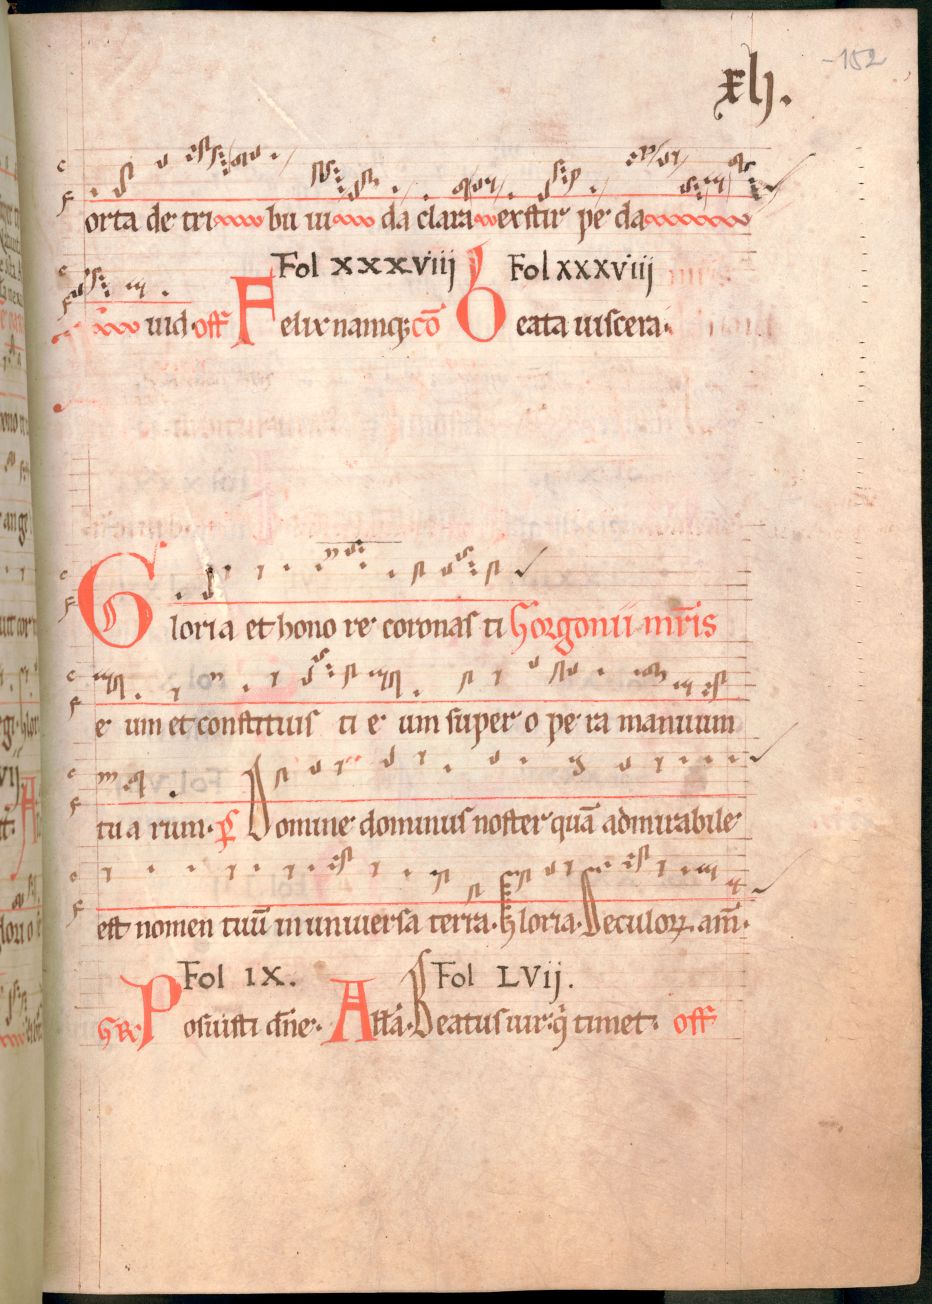 -152
xlj.
orta de tri bu iu da clara exstir pe da
uid. off Felix namq; cō Beata uiscera.
Fol xxxviij Fol xxxviij
Gloria et hono re coronas ti Gorgonii mr̄is
e um et constituis ti e um super o pe ra manuum
tu a rum. p̄s Domine dominus noster quā admirabile
est nomen tuū in universa terra. Gloria. Seculoꝝ am̄.
Fol IX. Fol LVij.
GR. Posuisti dn̄e. All̄a. Beatus uir. q̄ timet. off